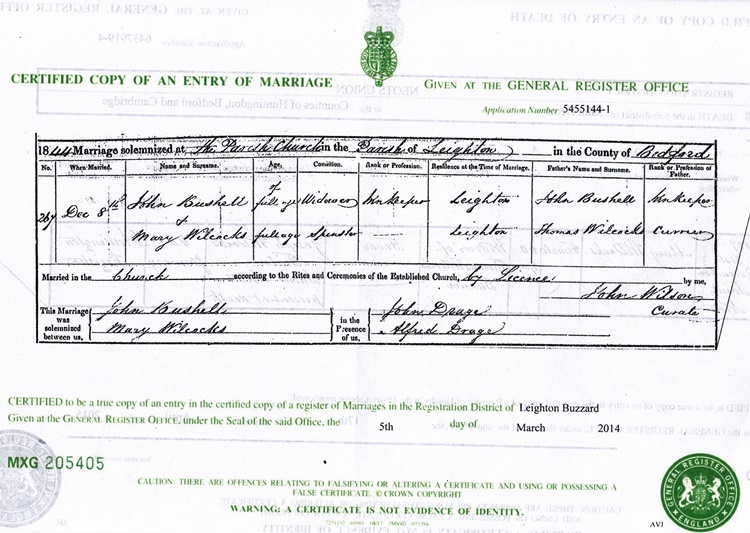 CERTIFIED COPY OF AN ENTRY OF MARRIAGE
GIVEN AT THE GENERAL REGISTER OFFICE
Application Number 5455144-1
1844 Marriage solemnized at the Parish Church in the Parish of Leighton in the County of Bedford
No. When Married. Name and Surname. Age. Condition. Rank or Profession. Residence at the Time of Marriage. Father's Name and Surname. Rank or Profession of Father.
267 Dec 8th John Bushell of full age Widower Innkeeper Leighton John Bushell Innkeeper
& Mary Wilcocks full age Spinster Leighton Thomas Wilcocks Currier
Married in the Church according to the Rites and Ceremonies of the Established Church, by Licence by me,
John Wilson
Curate
This Marriage was solemnized between us, John Bushell Mary Wilcocks in the Presence of us, John Drage Alfred Drage
CERTIFIED to be a true copy of an entry in the certified copy of a register of Marriages in the Registration District of Leighton Buzzard
Given at the GENERAL REGISTER OFFICE, under the Seal of the said Office, the 5th day of March 2014
MXG 205405
CAUTION: THERE ARE OFFENCES RELATING TO FALSIFYING OR ALTERING A CERTIFICATE AND USING OR POSSESSING A
FALSE CERTIFICATE. © CROWN COPYRIGHT
WARNING: A CERTIFICATE IS NOT EVIDENCE OF IDENTITY.
AVJ
GENERAL REGISTER OFFICE
ENGLAND